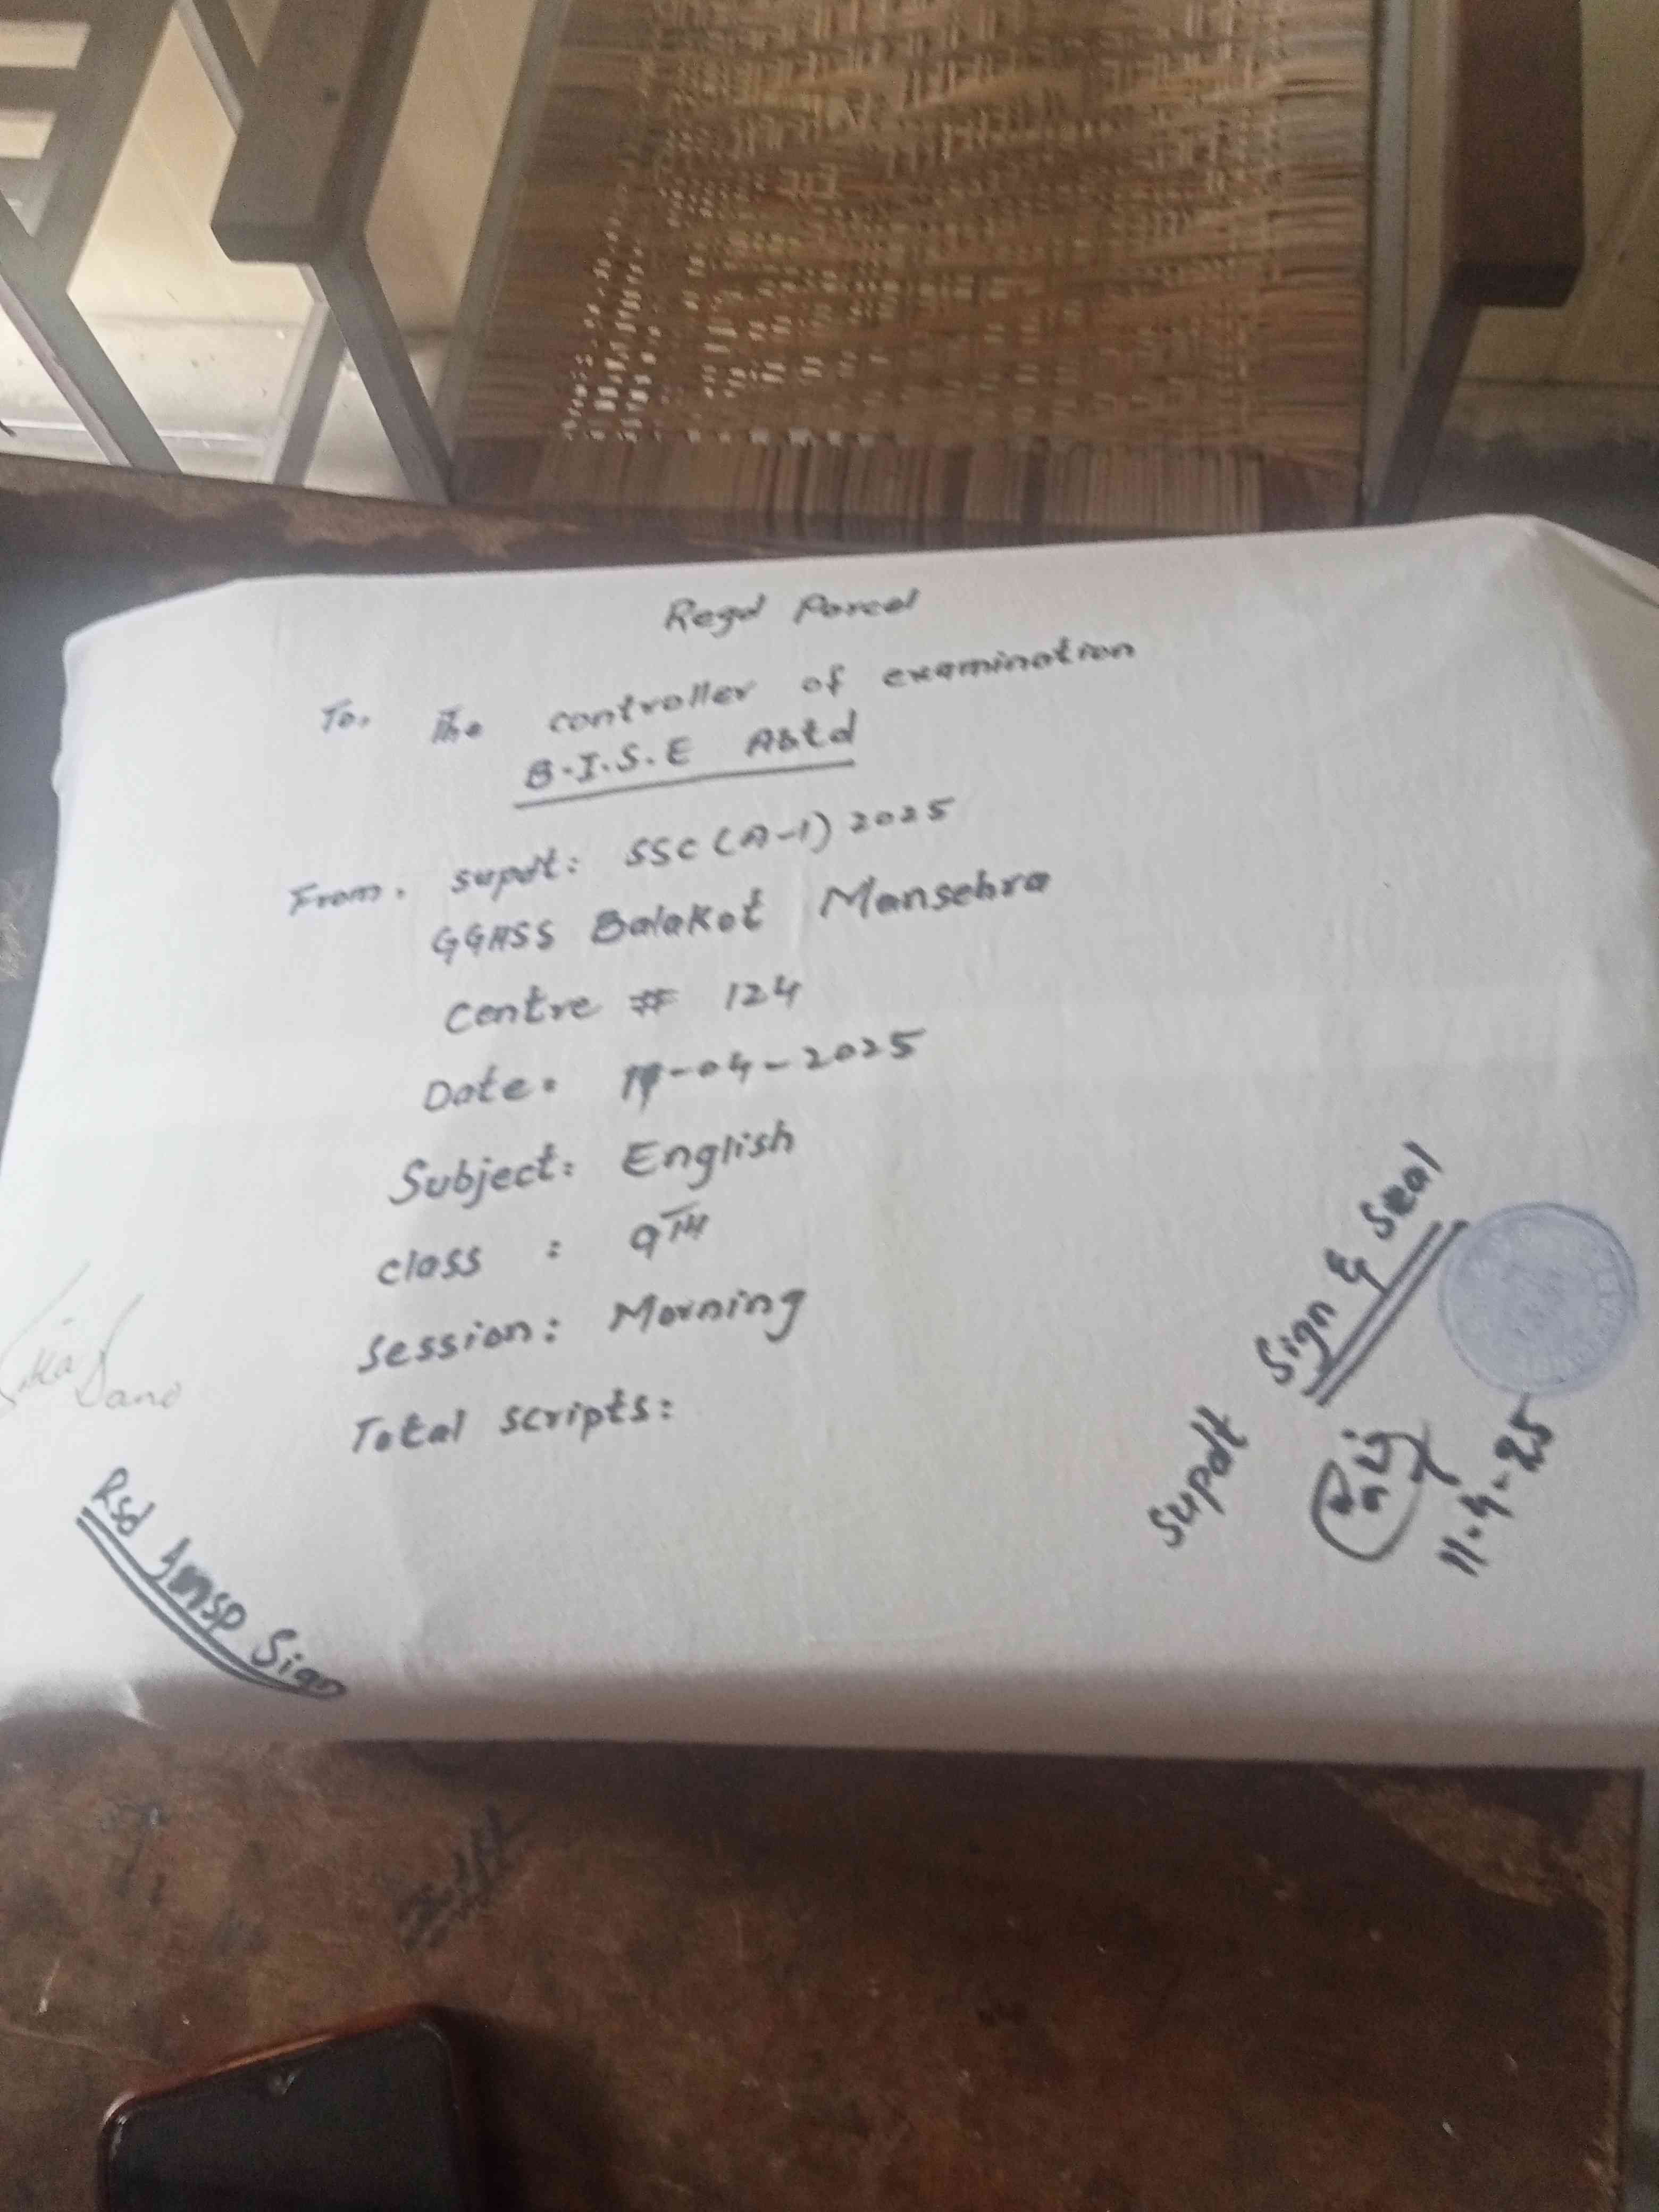 Regd Parcel
To, The controller of examination
B.I.S.E Abtd
From. supdt: SSC (A-1) 2025
GGHSS Balakot Mansehra
Centre # 124
Date: 11-04-2025
Subject: English
class : 9TH
Session: Morning
Total scripts:
Supdt Sign & Seal
11-4-25
Rsd Insp Sign